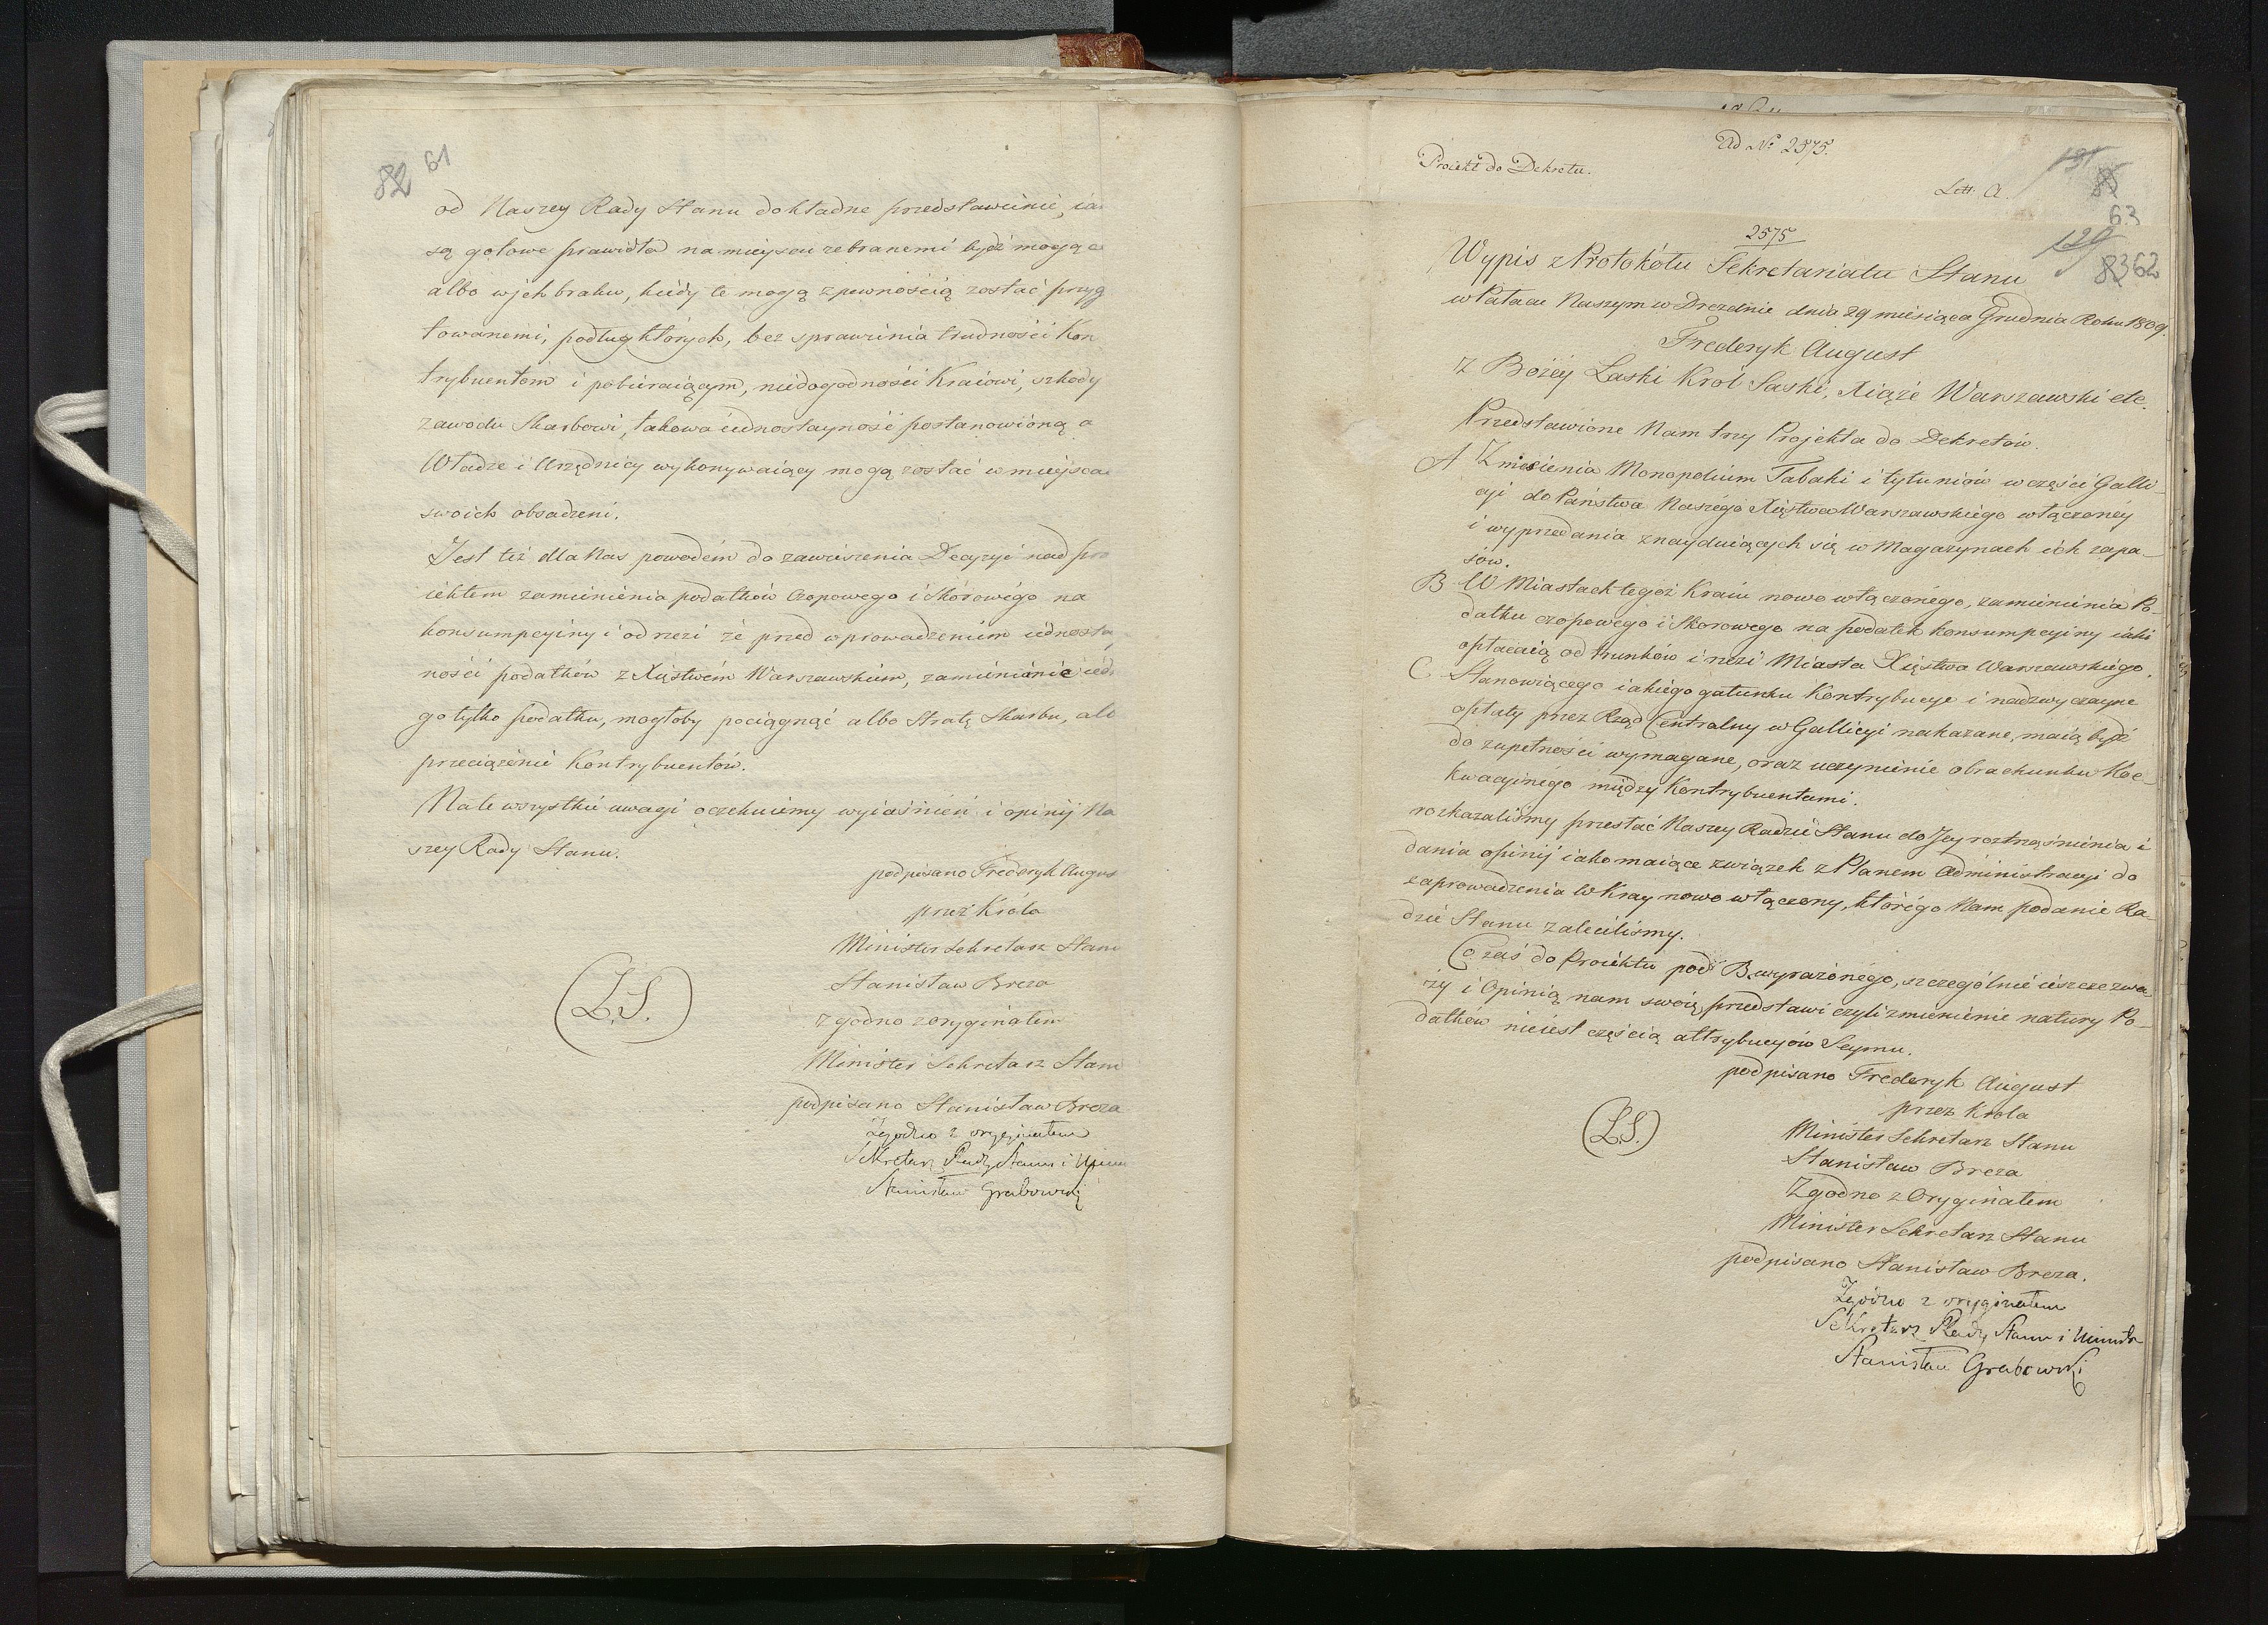 82 61
od Naszey Rady Stanu dokładne przedstawienie, ia
są gotowe prawidła na mieyscu zebranemi bydź mogące
albo w jch braku, kiedy te mogą z pewnością zostać przyg
towanemi, podług których, bez sprawienia trudności Kon
trybuentom i pobieraiącym, niedogodności Kraiowi, szkody
zawodu Skarbowi, takowa iednostayność postanowioną a
Władze i Urzędnicy wykonywaiący mogą zostać w mieysca
swoich obsadzeni.
Jest też dla Nas powodem do zawieszenia Decyzyi nad pro
iektem zamienienia podatków Czopowego i Skórowego na
konsumpcyiny i od rzezi że przed wprowadzeniem iednostay
ności podatków z Xięstwem Warszawskiem, zamienienie ied
go tylko podatku, mogłoby pociągnąć albo Stratę Skarbu, alb
przeciążenie Kontrybuentów.
Na te wszystkie uwagi oczekuiemy wyiaśnień i opinij Na
szey Rady Stanu.
podpisano Frederyk Augus
przez Krola
Minister Sekretarz Stanu
Stanisław Breza
(L.S.)
zgodno z oryginałem
Minister Sekretarz Stanu
podpisano Stanisław Breza
Zgodno z oryginałem
Sekretarz Rady Stanu i Minis
Stanisław Grabowski
Ad No 2575.
Proiekt do Dekretu.
Litt. A.
63
2575
129
8362
Wypis z Protokółu Sekretariatu Stanu
w Pałacu Naszym w Dreznie dnia 29 miesiąca Grudnia Roku 1809.
Frederyk August
Z Bożéy Łaski Krol Saski, Xiąże Warszawski etc.
Przedstawione Nam trzy Projekta do Dekretów.
A Zniesienia Monopolium Tabaki i tytuniów w części Galli-
cyi do Państwa Naszégo Xięstwa Warszawskiego włączonéy
i wyprzedania znayduiących się w Magazynach ich zapa-
sów.
B W Miastach tegoż Kraiu nowo włączonégo, zamienienia Po-
datku czopowego i Skorowego na podatek konsumpcyiny iaki
opłacaią od trunków i rzezi Miasta Xięstwa Warszawskiego.
C Stanowiącego iakiego gatunku Kontrybucye i nadzwyczayne
opłaty przez Rząd Centralny w Gallicyi nakazane, maią bydź
do zupełności wymagane, oraz uczynienie obrachunku Koe-
kwacyinego między Kontrybuentami.
rozkazaliśmy przesłać Naszey Radzie Stanu do Jey roztrząśnienia i
dania opinij iako maiące związek z Planem Administracyi do
zaprowadzenia w Kray nowo włączony, którégo Nam podanie Ra-
dzie Stanu zaleciliśmy.
Co zaś do Proiektu pod B. wyrażonégo, szczególnie ieszcze zwa-
ży i Opinią nam swoię przedstawi czyli zmienienie natury Po-
datków nieiest częścią attrybucyów Seymu.
podpisano Frederyk August
przez Krola
(L.S.)
Minister Sekretarz Stanu
Stanisław Breza
Zgodno z Oryginałem
Minister Sekretarz Stanu
podpisano Stanisław Breza.
Zgodno z oryginałem
Sekretarz Rady Stanu i Ministr
Stanisław Grabowski